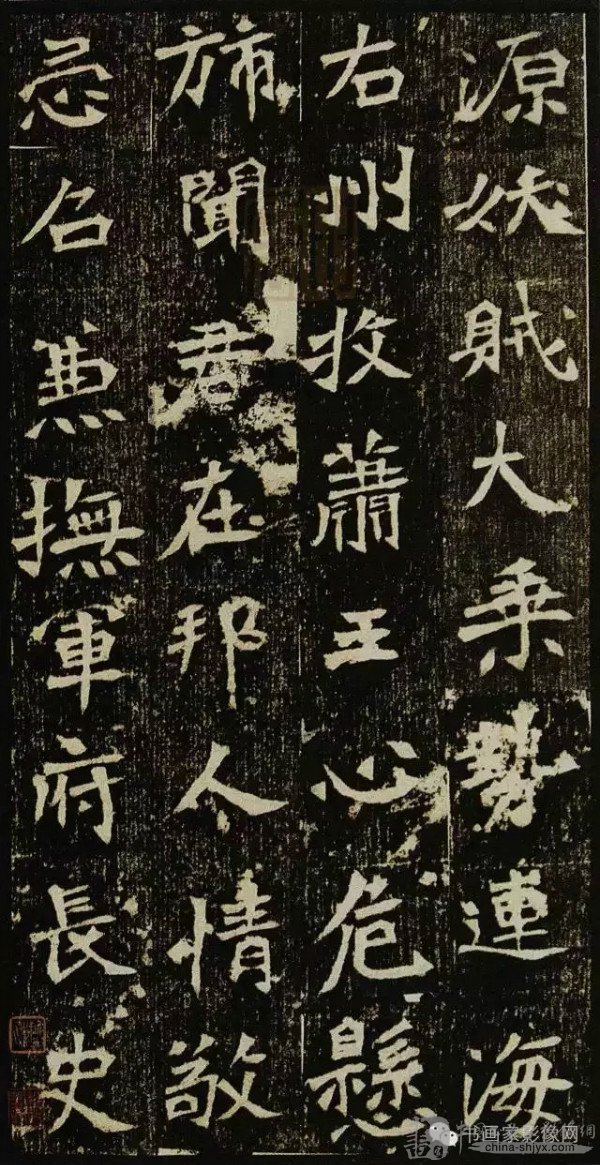 源妖賊大乘勢連海
右州牧蕭王心危懸
旆聞君在邦人情敬
忌召兼撫軍府長史
书画家影像网
china-shjyx.com